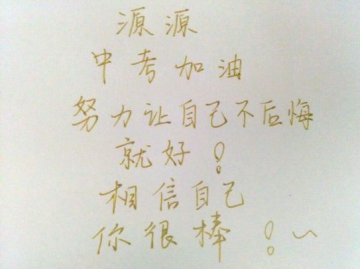 源源
中考加油
努力让自己不后悔
就好！
相信自己
你很棒！～